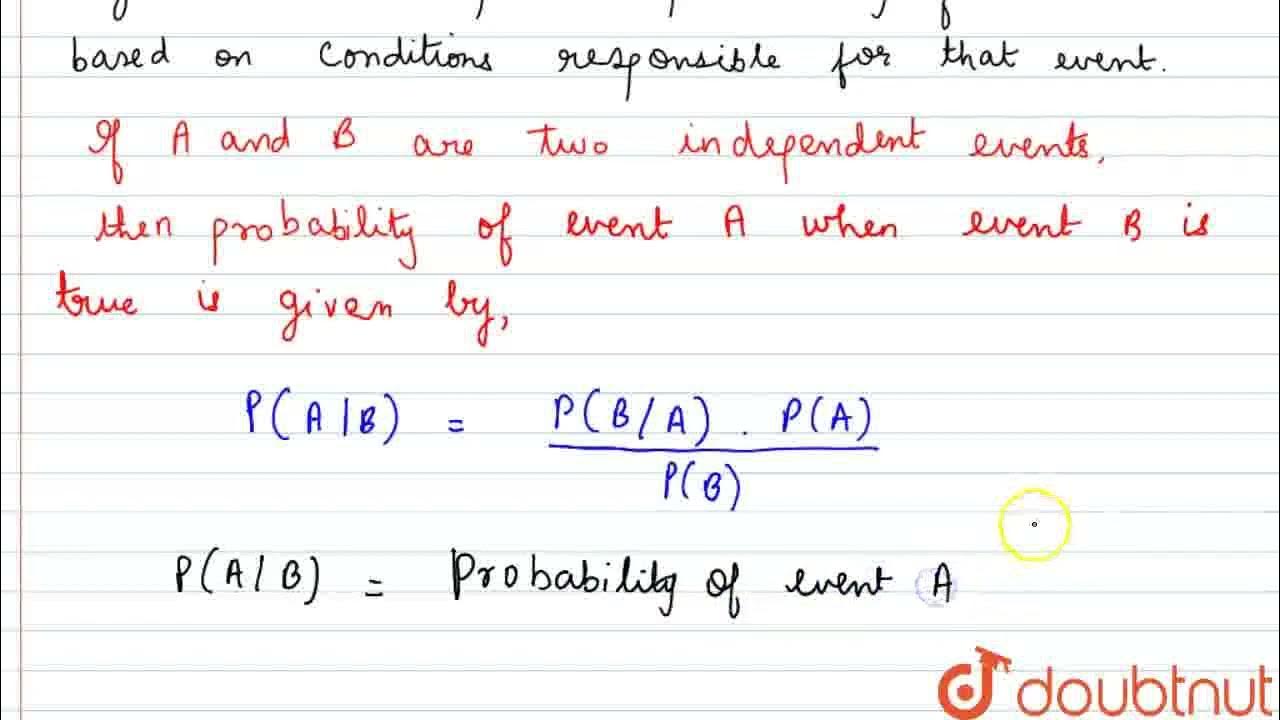 based on conditions responsible for that event.
If A and B are two independent events,
then probability of event A when event B is
true is given by,
P(A|B) = P(B/A) . P(A)
P(B)
P(A/B) = Probability of event A
doubtnut